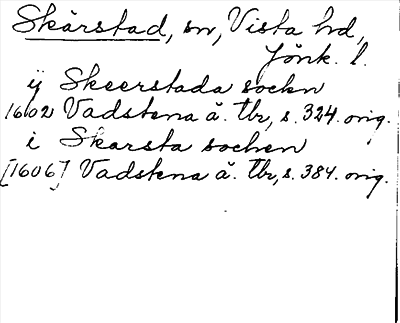 Skärstad, sn, Vista hd,
Jönk. l.
ij Skeerstada sockn
1602 Vadstena ä. tbr, s. 324. orig.
i Skarsta sochen
[1606] Vadstena ä. tbr, s. 384. orig.